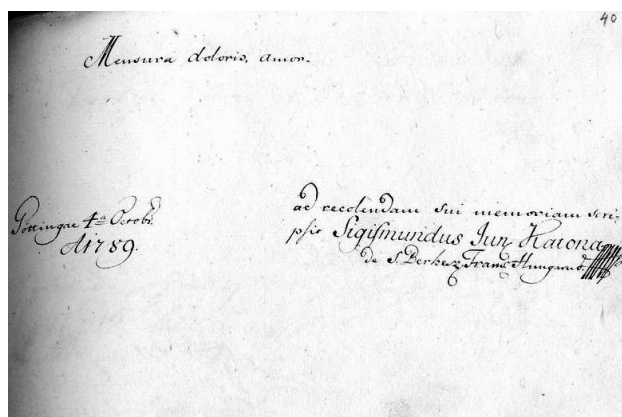 40
Mensura doloris, amor.
Göttingae 4ta Octobr.
A 1789.
ad recolendam sui memoriam scri-
psit Sigismundus Jun. Katona
de S. Berkesz Trans. Hungarus